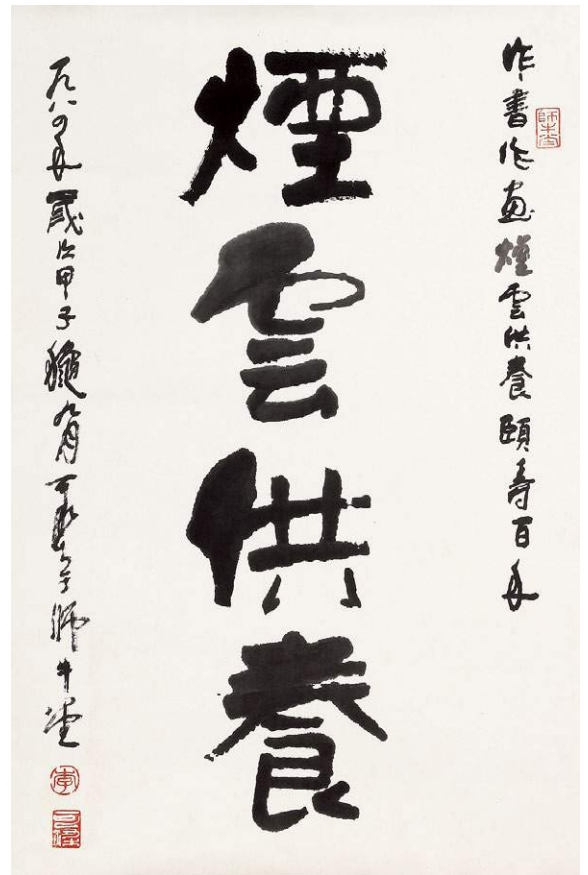 作書作畫煙雲供養頤壽百年
師牛堂
煙雲供養
一九八四年歲次甲子龝九月可染于師牛堂
李
可染